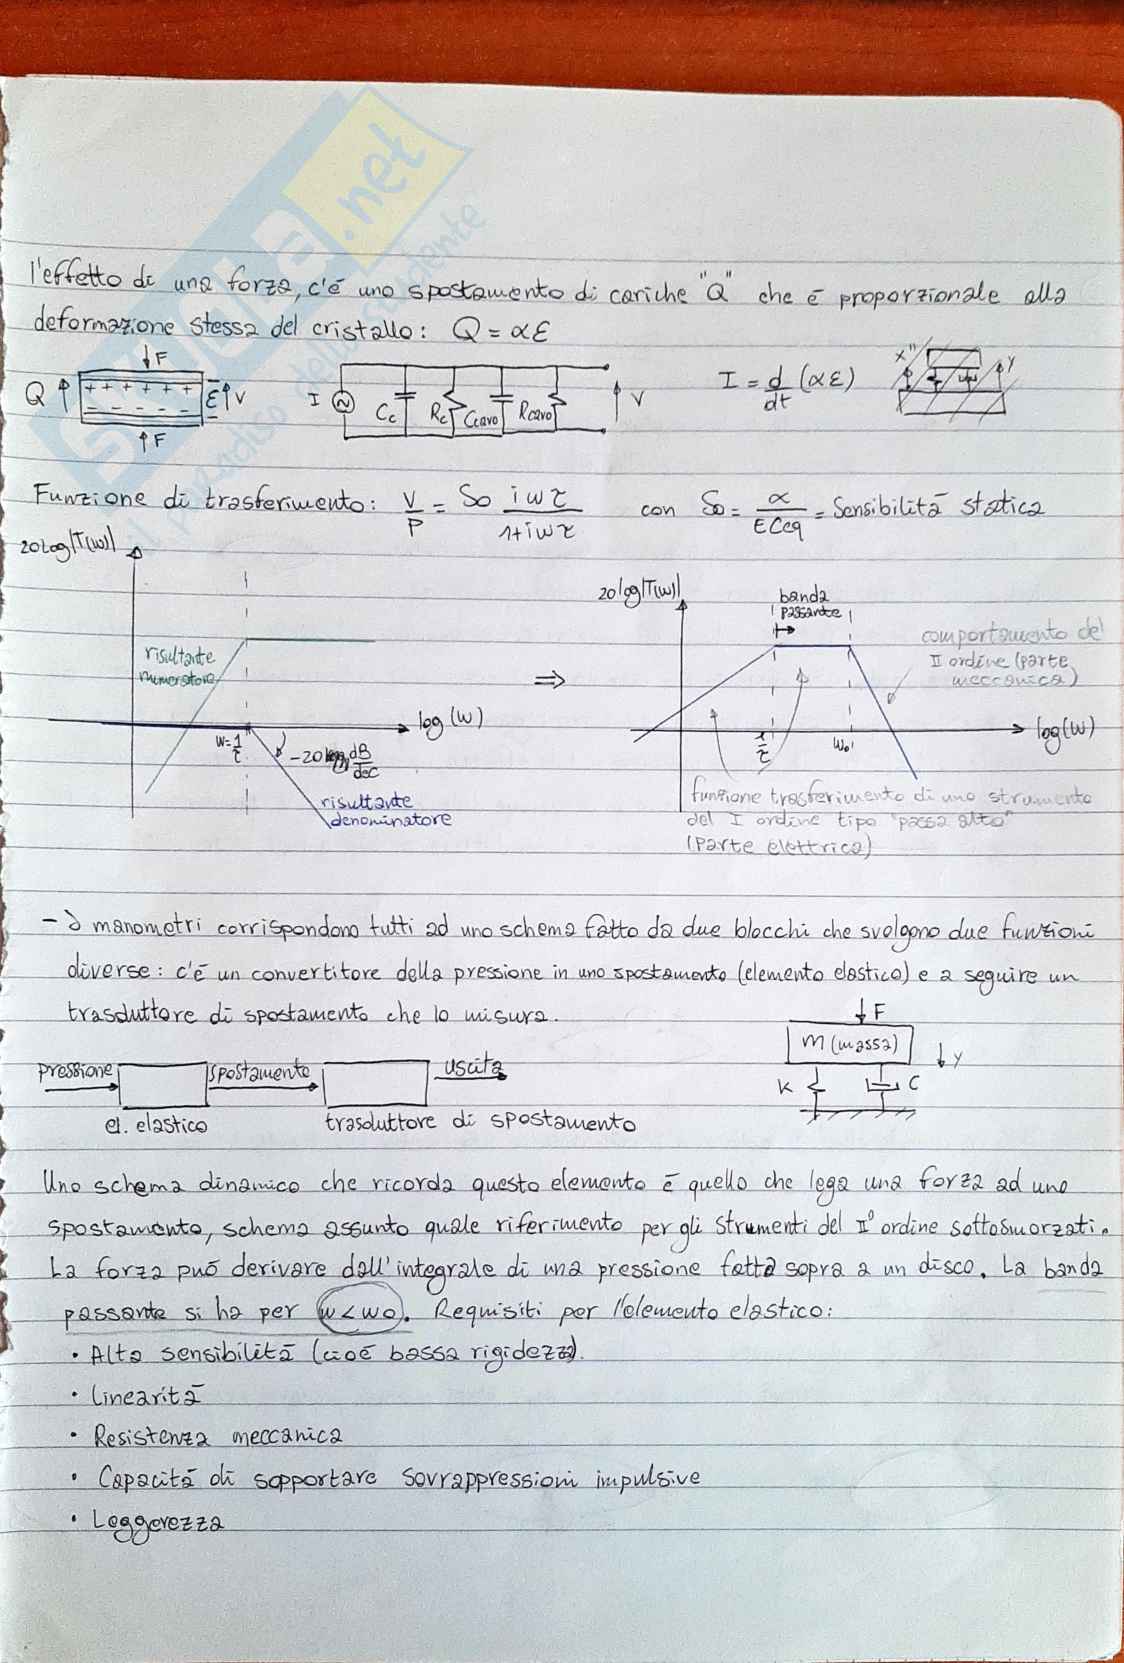 l'effetto di una forza, c'é uno spostamento di cariche "Q" che é proporzionale alla
deformazione stessa del cristallo: Q = αε
Q F + + + + + + - - - - - ε V F
I Cc Rc Ccavo Rcavo V
I = d/dt (αε)
x" y
Funzione di trasferimento: V/P = So iωτ/1+iωτ con So = α/ECeq = Sensibilitá statica
20log|T(ω)|
risultante
numeratore
ω=1/τ
log(ω)
-20 dB/dec
risultante
denominatore
⇒
20log|T(ω)|
banda
passante
comportamento del
II ordine (parte
meccanica)
1/τ
ωo
log(ω)
funzione trasferimento di uno strumento
del I ordine tipo "passa alto"
(parte elettrica)
- I manometri corrispondono tutti ad uno schema fatto da due blocchi che svolgono due funzioni
diverse: c'é un convertitore della pressione in uno spostamento (elemento elastico) e a seguire un
trasduttore di spostamento che lo misura.
F
m (massa)
y
K C
pressione spostamento uscita
el. elastico trasduttore di spostamento
Uno schema dinamico che ricorda questo elemento é quello che lega una forza ad uno
spostamento, schema assunto quale riferimento per gli strumenti del II° ordine sottosmorzati.
La forza puó derivare dall'integrale di una pressione fatta sopra a un disco. La banda
passante si ha per ω<ωo. Requisiti per l'elemento elastico:
• Alta sensibilitá (cioé bassa rigidezza).
• Linearitá
• Resistenza meccanica
• Capacitá di sopportare sovrappressioni impulsive
• Leggerezza
skuola.net
il paradiso dello studente